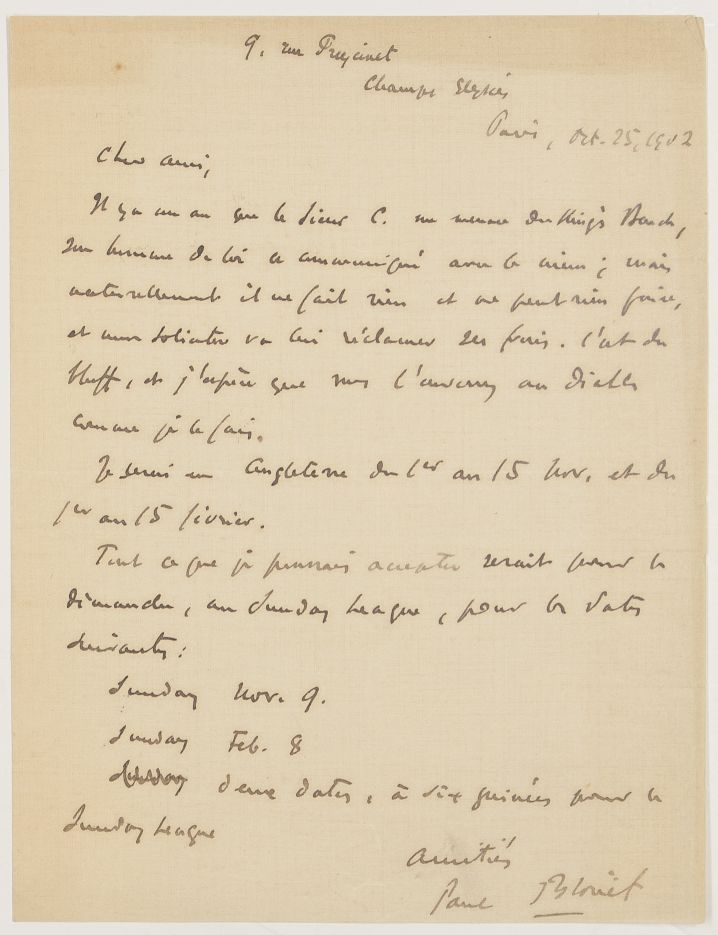 9, rue Freycinet
Champs Elysées
Paris, Oct. 25, 1902
Cher ami,
Il y a un an que le Sieur C. me menace du King's Bench,
son homme de loi a communiqué avec le mien ; mais
naturellement il ne fait rien et ne peut rien faire,
et mon solicitor va lui réclamer ses frais. C'est du
bluff, et j'espère que vous l'enverrez au diable
comme je le fais.
Je serai en Angleterre du 1er au 15 Nov. et du
1er au 15 février.
Tout ce que je pourrais accepter serait pour le
dimanche, au Sunday League, pour les dates
suivantes :
Sunday Nov. 9.
Sunday Feb. 8
deux dates, à six guinées pour la
Sunday League
Amitiés
Paul Blouët